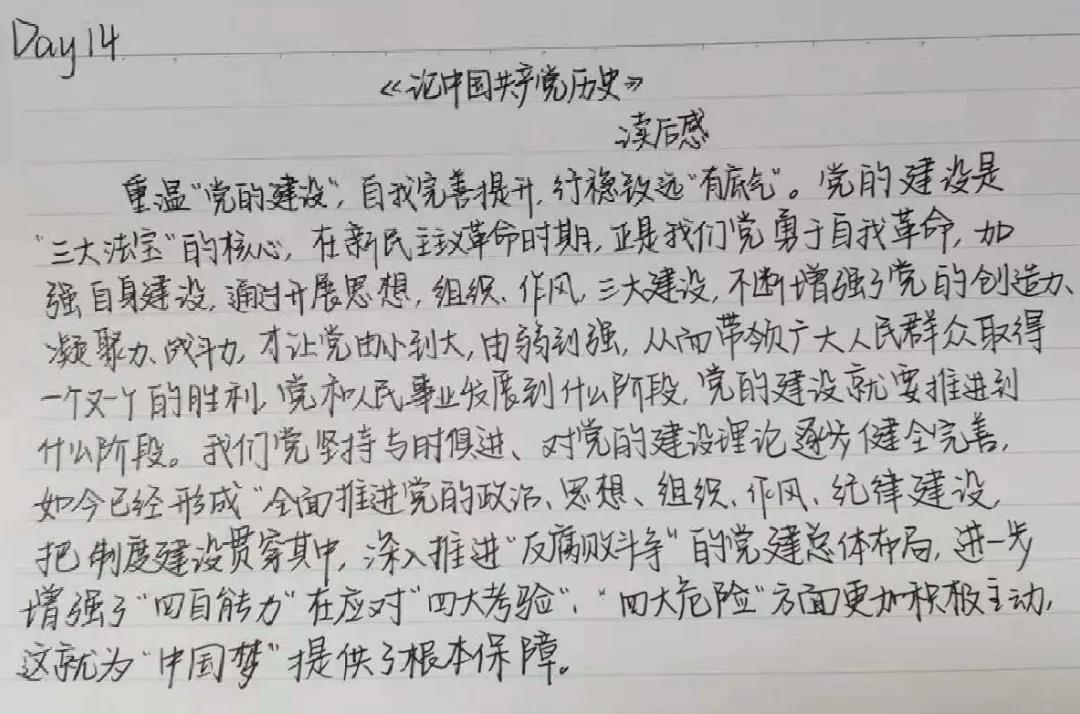 Day 14
《论中国共产党历史》
读后感
重温“党的建设”，自我完善提升，行稳致远“有底气”。党的建设是
“三大法宝”的核心，在新民主主义革命时期，正是我们党勇于自我革命，加
强自身建设，通过开展思想，组织、作风，三大建设，不断增强了党的创造力、
凝聚力、战斗力，才让党由小到大，由弱到强，从而带领广大人民群众取得
一个又一个的胜利，党和人民事业发展到什么阶段，党的建设就要推进到
什么阶段。我们党坚持与时俱进、对党的建设理论逐步健全完善，
如今已经形成“全面推进党的政治、思想、组织、作风、纪律建设，
把制度建设贯穿其中，深入推进“反腐败斗争”的党建总体布局，进一步
增强了“四自能力”在应对“四大考验”、“四大危险”方面更加积极主动，
这就为“中国梦”提供了根本保障。